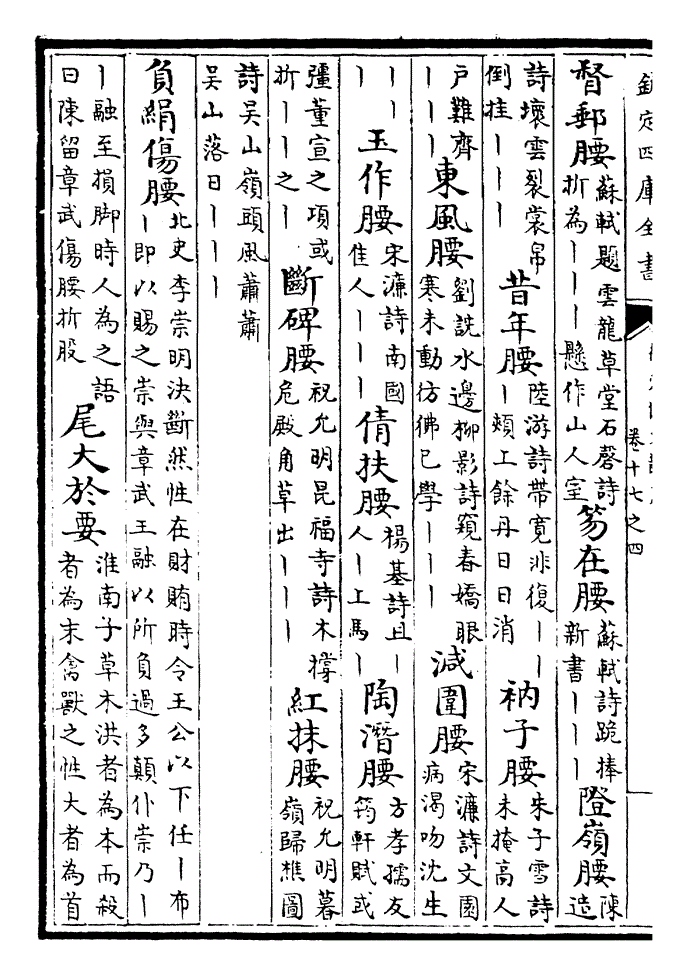 欽定四庫全書
卷十七之四
督郵腰
蘇軾題雲龍草堂石磬詩
折為丨丨丨懸作山人室
笏在腰
蘇軾詩跪捧
新書丨丨丨
隥嶺腰
陳
造
詩壞雲裂裳帛
倒挂丨丨丨
昔年腰
陸游詩帶寬非復丨丨
丨頰工餘丹日日消
衲子腰
朱子雪詩
未掩高人
戶難齊
丨丨丨
東風腰
劉詵水邊柳影詩窺春嬌眼
寒未動彷彿已學丨丨丨
減圍腰
宋濂詩文園
病渴吻沈生
丨丨
丨
玉作腰
宋濂詩南國
佳人丨丨丨
倩扶腰
楊基詩且丨
人丨上馬丨
陶潛腰
方孝孺友
筠軒賦或
彊董宣之項或
折丨丨之丨
斷碑腰
祝允明昆福寺詩木撐
危殿角草出丨丨丨
紅抹腰
祝允明暮
嶺歸樵圖
詩吳山嶺頭風蕭蕭
吳山落日丨丨丨
負絹傷腰
北史李崇明決斷然性在財賄時令王公以下任丨布
丨即以賜之崇與章武王融以所負過多顛仆崇乃丨
丨融至損脚時人為之語
曰陳留章武傷腰折股
尾大於要
淮南子草木洪者為本而殺
者為末禽獸之性大者為首